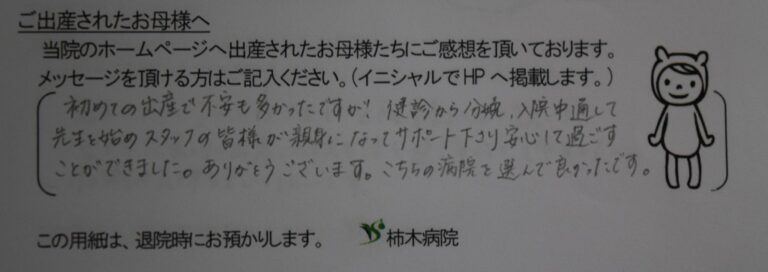 ご出産されたお母様へ
当院のホームページへ出産されたお母様たちにご感想を頂いております。
メッセージを頂ける方はご記入ください。(イニシャルでHPへ掲載します。)
初めての出産で不安も多かったですが、健診から分娩、入院中通して
先生を始めスタッフの皆様が親身になってサポート下さり安心して過ごす
ことができました。ありがとうございます。こちらの病院を選んで良かったです。
この用紙は、退院時にお預かりします。 柿木病院